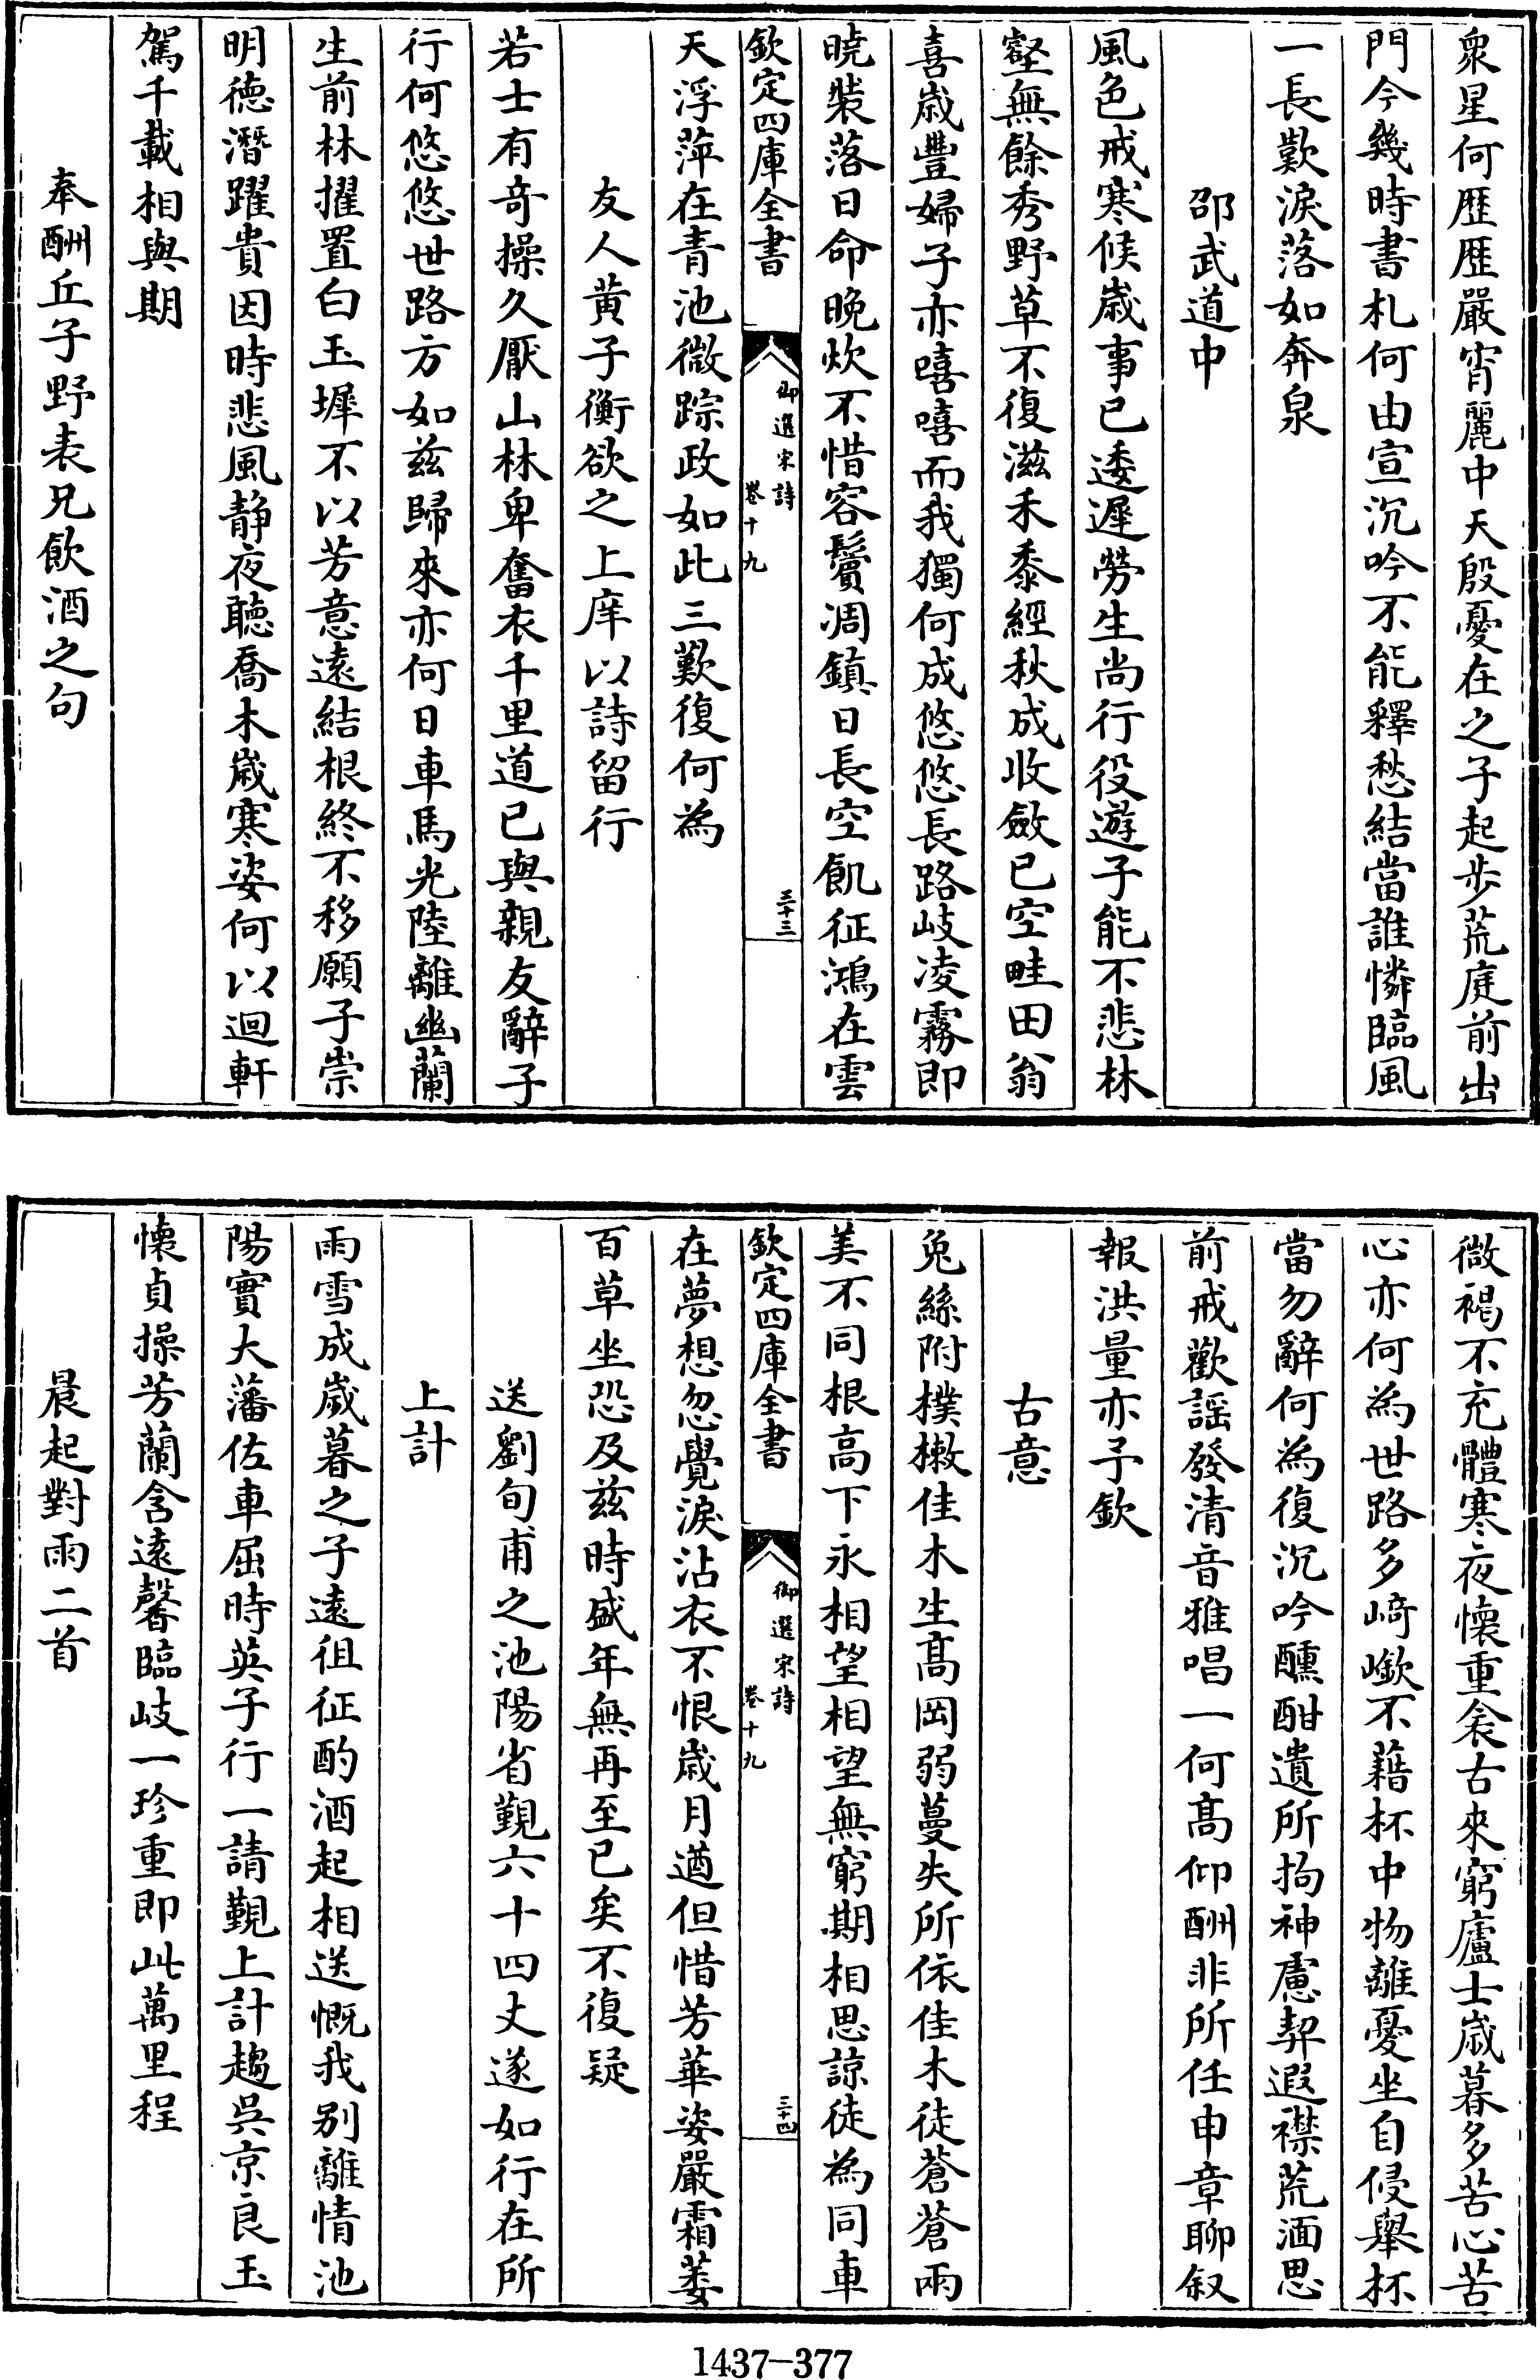 衆星何歴歴嚴宵麗中天殷憂在之子起步荒庭前出
門今幾時書札何由宣沉吟不能釋愁結當誰憐臨風
一長歎淚落如奔泉
邵武道中
風色戒寒候歲事已逶遲勞生尚行役遊子能不悲林
壑無餘秀野草不復滋禾黍經秋成收斂已空畦田翁
喜歲豐婦子亦嘻嘻而我獨何成悠悠長路岐凌霧即
曉裝落日命晚炊不惜容鬢凋鎮日長空飢征鴻在雲
欽定四庫全書
御選宋詩
卷十九
三十三
天浮萍在青池微踪政如此三歎復何為
友人黃子衡欲之上庠以詩留行
若士有奇操久厭山林卑奮衣千里道已與親友辭子
行何悠悠世路方如茲歸來亦何日車馬光陸離幽蘭
生前林擢置白玉墀不以芳意遠結根終不移願子崇
明德潛躍貴因時悲風靜夜聽喬木歲寒姿何以迴軒
駕千載相與期
奉酬丘子野表兄飲酒之句
微褐不充體寒夜懷重衾古來窮廬士歲暮多苦心苦
心亦何為世路多﨑嶔不藉杯中物離憂坐自侵舉杯
當勿辭何為復沉吟醺酣遺所拘神慮契遐襟荒湎思
前戒歡謡發清音雅唱一何高仰酬非所任申章聊叙
報洪量亦予欽
古意
兔絲附樸樕佳木生高岡弱蔓失所依佳木徒蒼蒼兩
美不同根高下永相望相望無窮期相思諒徒為同車
欽定四庫全書
御選宋詩
卷十九
三十四
在夢想忽覺淚沾衣不恨歲月遒但惜芳華姿嚴霜萎
百草坐恐及茲時盛年無再至已矣不復疑
送劉旬甫之池陽省覲六十四丈遂如行在所
上計
雨雪成歲暮之子遠徂征酌酒起相送慨我别離情池
陽實大藩佐車屈時英子行一請覲上計趨吳京良玉
懷貞操芳蘭含遠馨臨岐一珍重即此萬里程
晨起對雨二首
1437-377